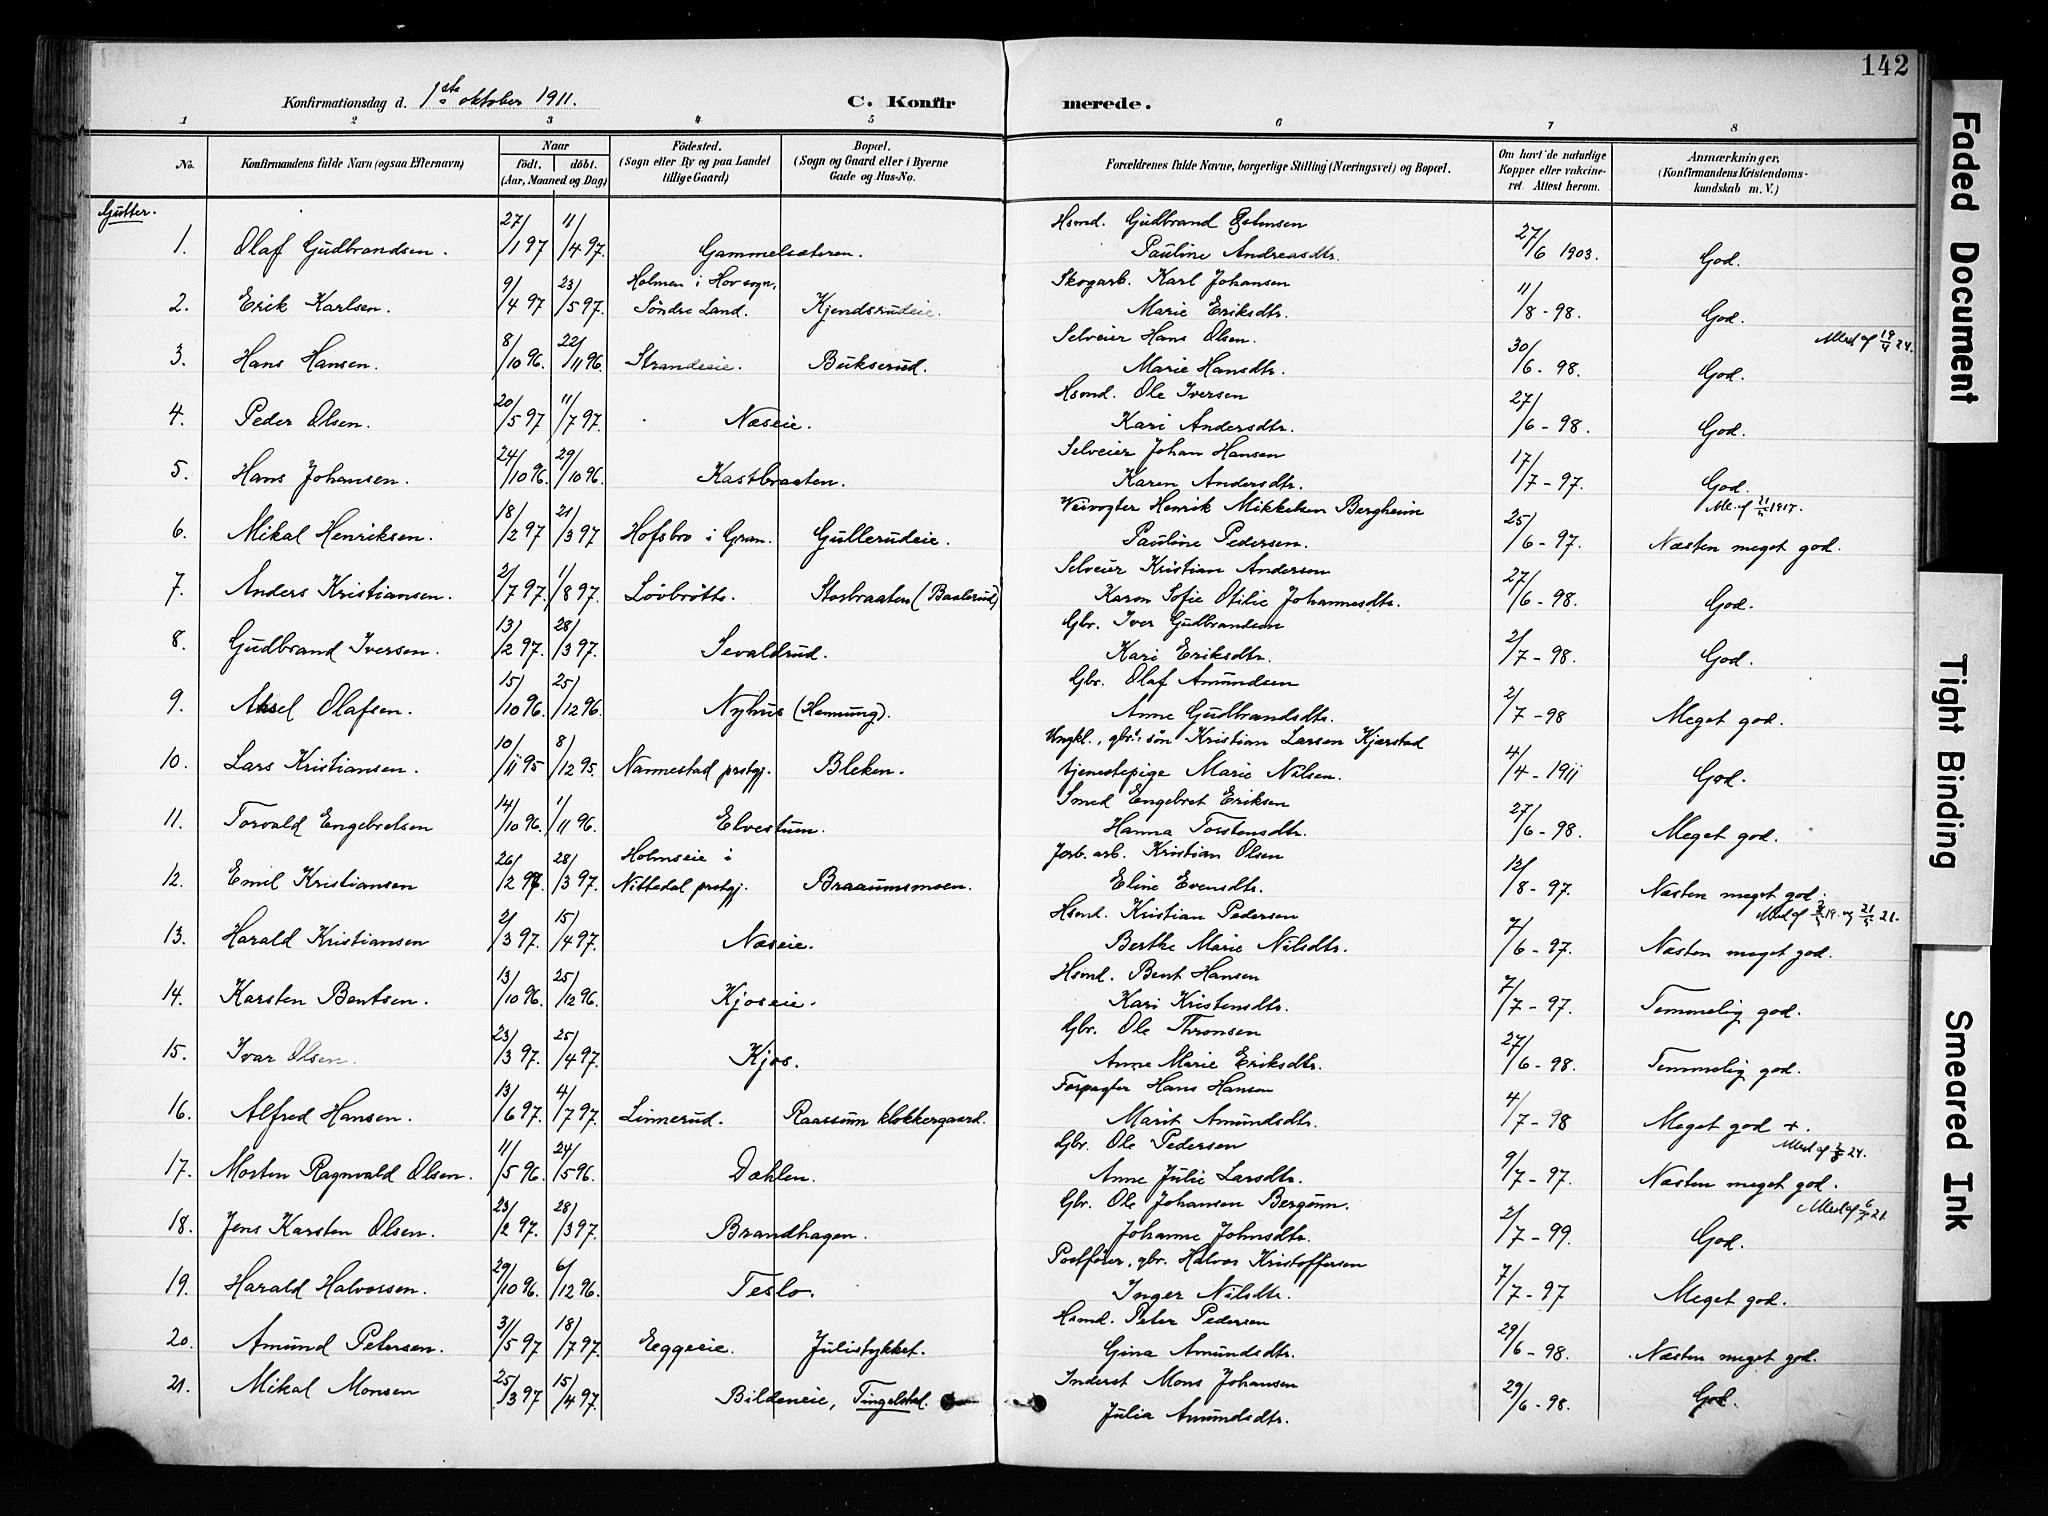 142
Konfirmationsdag d. 1ste oktober 1911.
C. Konfirmerede.
1 2 3 4 5 6 7 8
No. Konfirmandens fulde Navn (ogsaa Efternavn) Naar födt, döbt. (Aar, Maaned og Dag) Födested. (Sogn eller By og paa Landet tillige Gaard) Bopæl. (Sogn og Gaard eller i Byerne Gade og Hus-No. Forældrenes fulde Navne, borgerlige Stilling (Næringsvei) og Bopæl. Om havt de naturlige Kopper eller vakcineret. Attest herom. Anmærkninger, (Konfirmandens Kristendomskundskab m. V.)
Gutter.
Hsmd. Gudbrand
1. Olaf Gudbrandsen. 27/1 97 11/4 97. Gammelsæteren. Pauline Andreasdtr. 27/6 1903. God.
Holmen i Hov sogn, Skogarb. Karl Johansen
2. Erik Karlsen. 9/4 97 23/5 97. Söndre Land. Kjendsrudeie. Marie Eriksdtr. 11/8 - 98. God.
Selveier Hans Olsen. Med. af 19/4 24.
3. Hans Hansen. 8/10 96. 22/11 96. Strandeie. Bukserud. Marie Hansdtr. 30/6 - 98. God.
Hsmd. Ole Iversen
4. Peder Olsen. 20/5 97 11/7 97. Næseie. Kari Andersdtr. 27/6 - 98. God.
Selveier Johan Hansen
5. Hans Johansen. 24/10 96. 29/10 96. Kastbraaten. Karen Andersdtr. 17/7 - 97. God.
Veivogter Henrik Mikkelsen Bergheim
6. Mikal Henriksen. 18/2 97 21/3 97 Hofsbro i Gran. Gullerudeie. Pauline Pedersen. 25/6 - 97. Næsten meget god.
Selveier Kristian Andersen
7. Anders Kristiansen. 2/7 97. 1/8 97. Lövbrötte. Stosbraaten (Baalerud) Karen Sofie Otilie Johannesdtr. 27/6 - 98. God.
Gbr. Iver Gudbrandsen
8. Gudbrand Iversen. 13/2 97. 28/3 97. Sevaldrud. Kari Eriksdtr. 2/7 - 98. God.
Gbr. Olaf Amundsen
9. Aksel Olafsen. 15/10 96. 25/12 96. Nyhus (Hennung). Anne Gudbrandsdtr. 2/7 - 98 Meget god.
Ungkl., gbr.s sön Kristian Larsen Kjærstad
10. Lars Kristiansen. 10/11 95 8/12 95. Nannestad prstgj. Bleken. tjenestepige Marie Nilsen. 4/4 - 1911 God.
Smed Engebret Eriksen
11. Torvald Engebretsen 14/10 96. 1/11 96. Elvestuen. Hanna Torstensdtr. 27/6 - 98. Meget god.
Holmseie i Jorb. arb. Kristian Olsen
12. Emil Kristiansen 26/2 97. 28/3 97. Nittedal prstgj. Braaumsmoen. Eline Evensdtr. 13/8 - 97. Næsten meget god.
Hsmd. Kristian Pedersen
13. Harald Kristiansen 2/3 97. 15/4 97. Næseie. Berthe Marie Nilsdtr. 7/6 - 97. Næsten meget god.
Hsmd. Bent Hansen
14. Karsten Bentsen. 13/10 96. 25/12 96. Kjoseie. Kari Kristensdtr. 7/7 - 97. Temmelig god.
Gbr. Ole Thronsen
15. Ivar Olsen. 23/3 97. 25/4 97. Kjos. Anne Marie Eriksdtr. 27/6 - 98. Temmelig god.
Forpagter Hans Hansen
16. Alfred Hansen. 13/6 97. 4/7 97. Linnerud. Raassum klokkergaard. Marit Amundsdtr. 4/7 - 98 Meget god +.
Gbr. Ole Pedersen
17. Morten Ragnvald Olsen. 11/5 96. 24/5 96. Dæhlen. Anne Julie Larsdtr. 9/7 - 97. Næsten meget god.
Gbr. Ole Johansen Bergum.
18. Jens Karsten Olsen. 23/2 97. 28/3 97. Brandhagen. Johanne Johnsdtr. 2/7 - 99. God.
Postförer, gbr. Halvor Kristoffersen
19. Harald Halvorsen. 29/10 96. 6/12 96. Teslo. Inger Nilsdtr. 7/7 - 97 Meget god.
Hsmd. Peter Pedersen
20. Amund Petersen. 31/5 97 18/7 97. Eggeeie. Julistykket. Gina Amundsdtr. 29/6 - 98. Næsten meget god.
Inderst Mons Johansen
21. Mikal Monsen 25/3 97 15/4 97. Bildeneie, Tingelstad. Julia Amundsdtr. 29/6 - 98. God.
Faded Document
Tight Binding
Smeared Ink